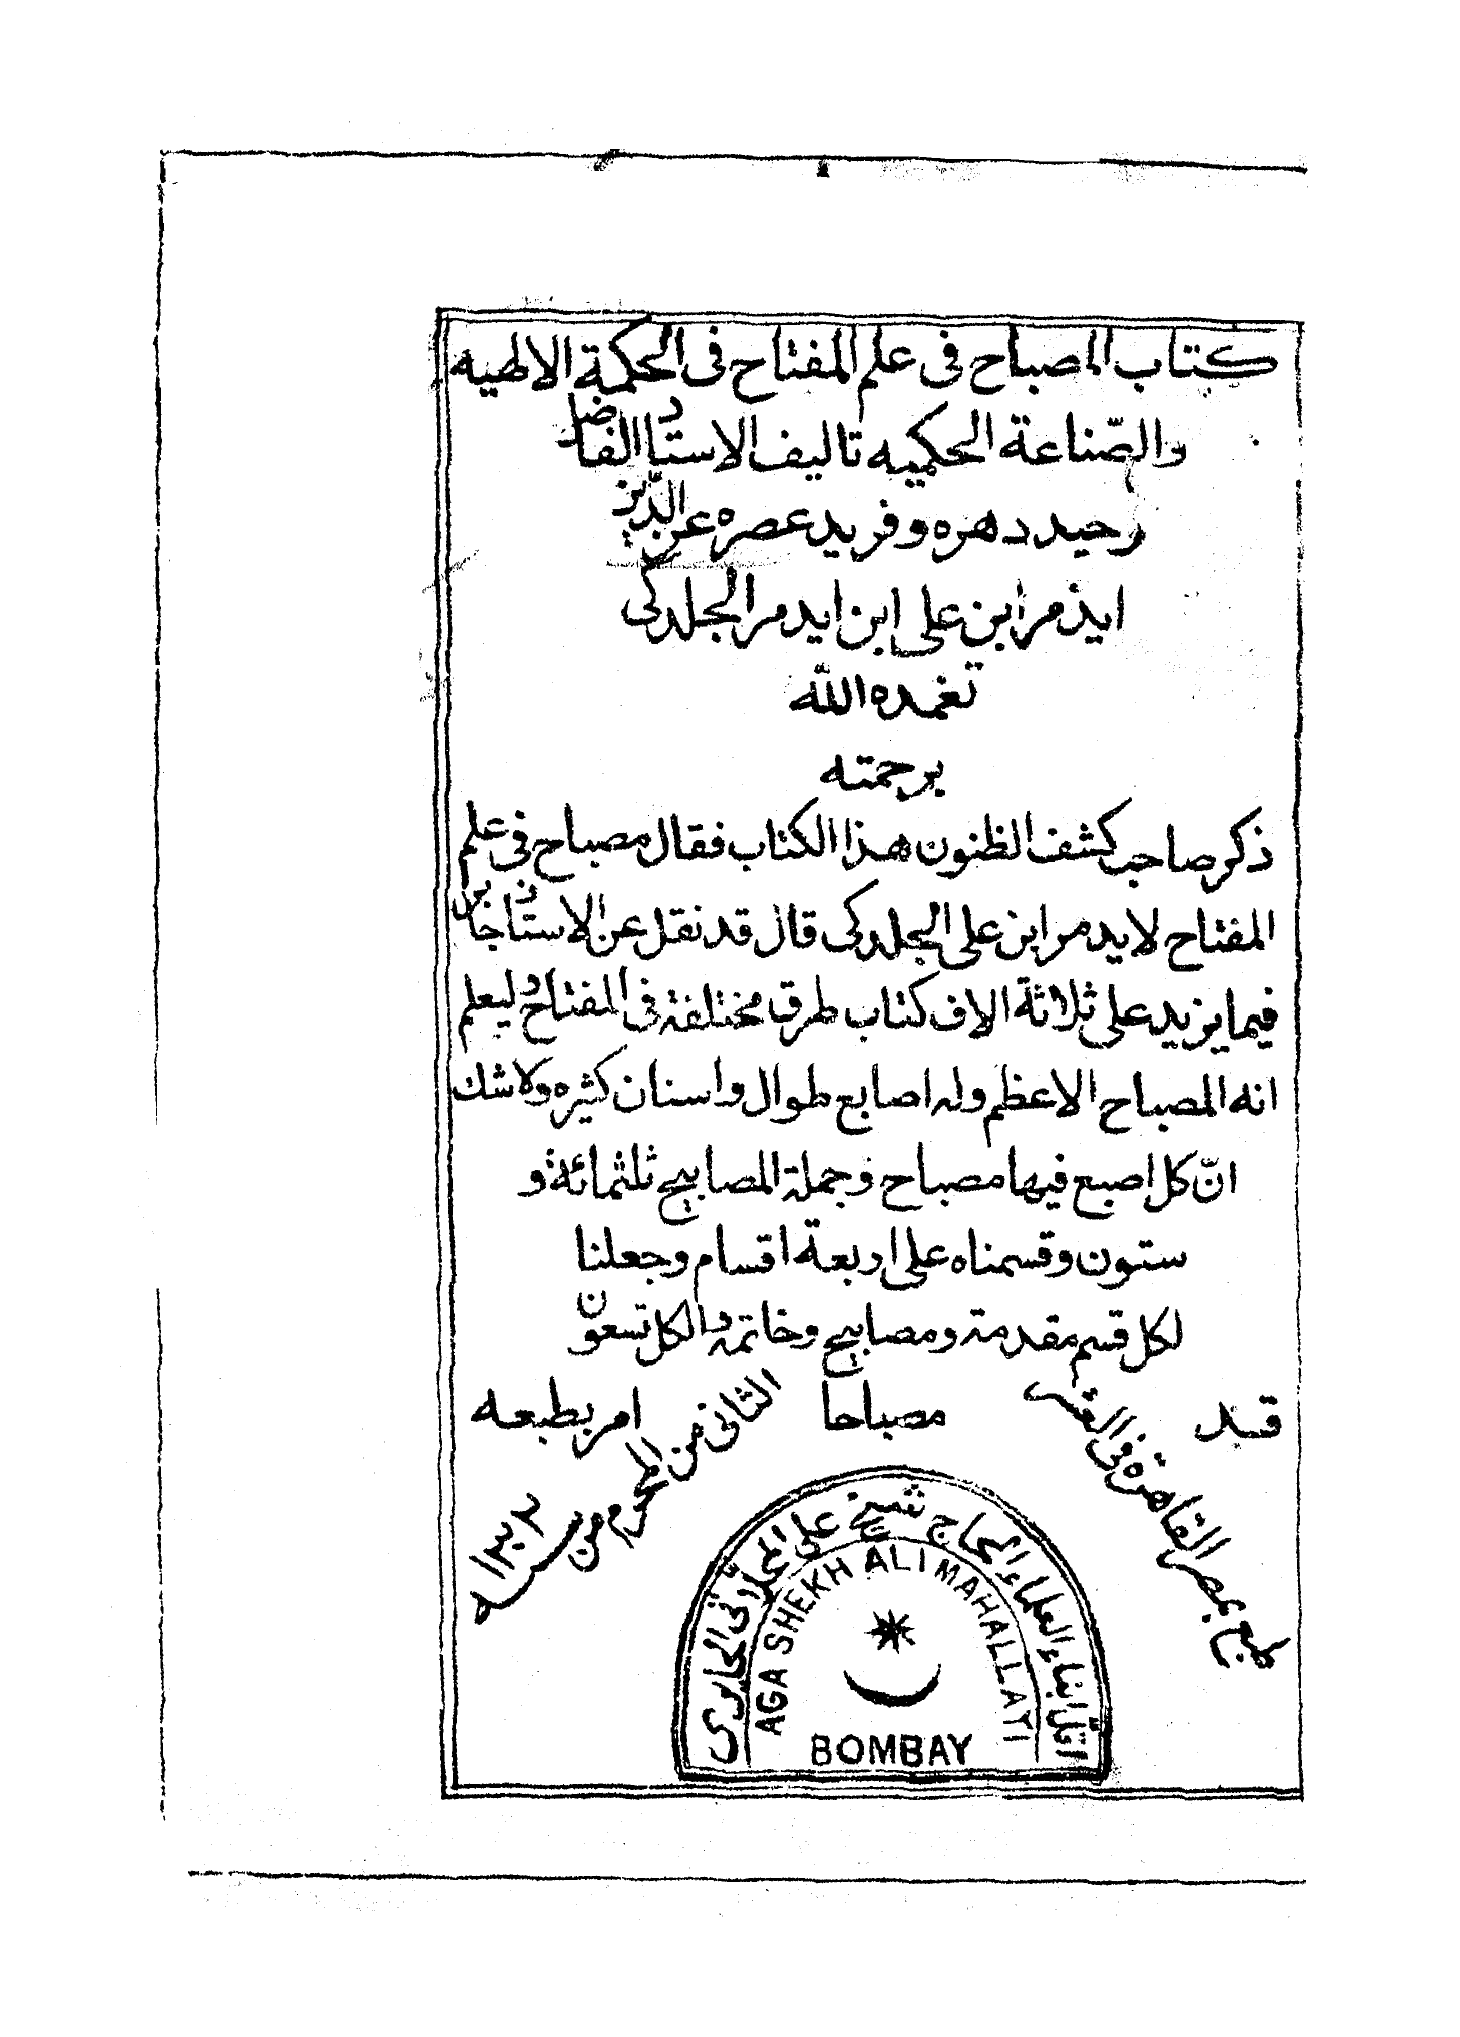 كتاب المصباح فى علم المفتاح فى الحكمة الالهيه
والصّناعة الحكميه تاليف الاستاد الفاضل
وحيد دهره وفريد عصره عز الدّين
ايدمر ابن على ابن ايدمر الجلدكى
تغمده الله
برحمته
ذكر صاحب كشف الظنون هذا الكتاب فقال مصباح فى علم
المفتاح لايدمر ابن على الجلدكى قال قد نقل عن الاستاد جابر
فيما يزيد على ثلاثة الاف كتاب طرق مختلفة فى المفتاح وليعلم
انه المصباح الاعظم وله اصابع طوال واسنان كثيره ولاشك
انّ كل اصبع فيها مصباح وجملة المصابيح ثلثمائة و
ستون وقسمناه على اربعة اقسام وجعلنا
لكل قسم مقدمة ومصابيح وخاتمة والكل تسعون
مصباحا
قد
امر بطبعه
طبع بمصر القاهرة فى العشر
الثانى من المحرم من سنه ١٣٠٢
اقل ابناء العلماء الحاج شيخ على المحلاتى الحايرى
AGA SHEKH ALI MAHALLATI
BOMBAY